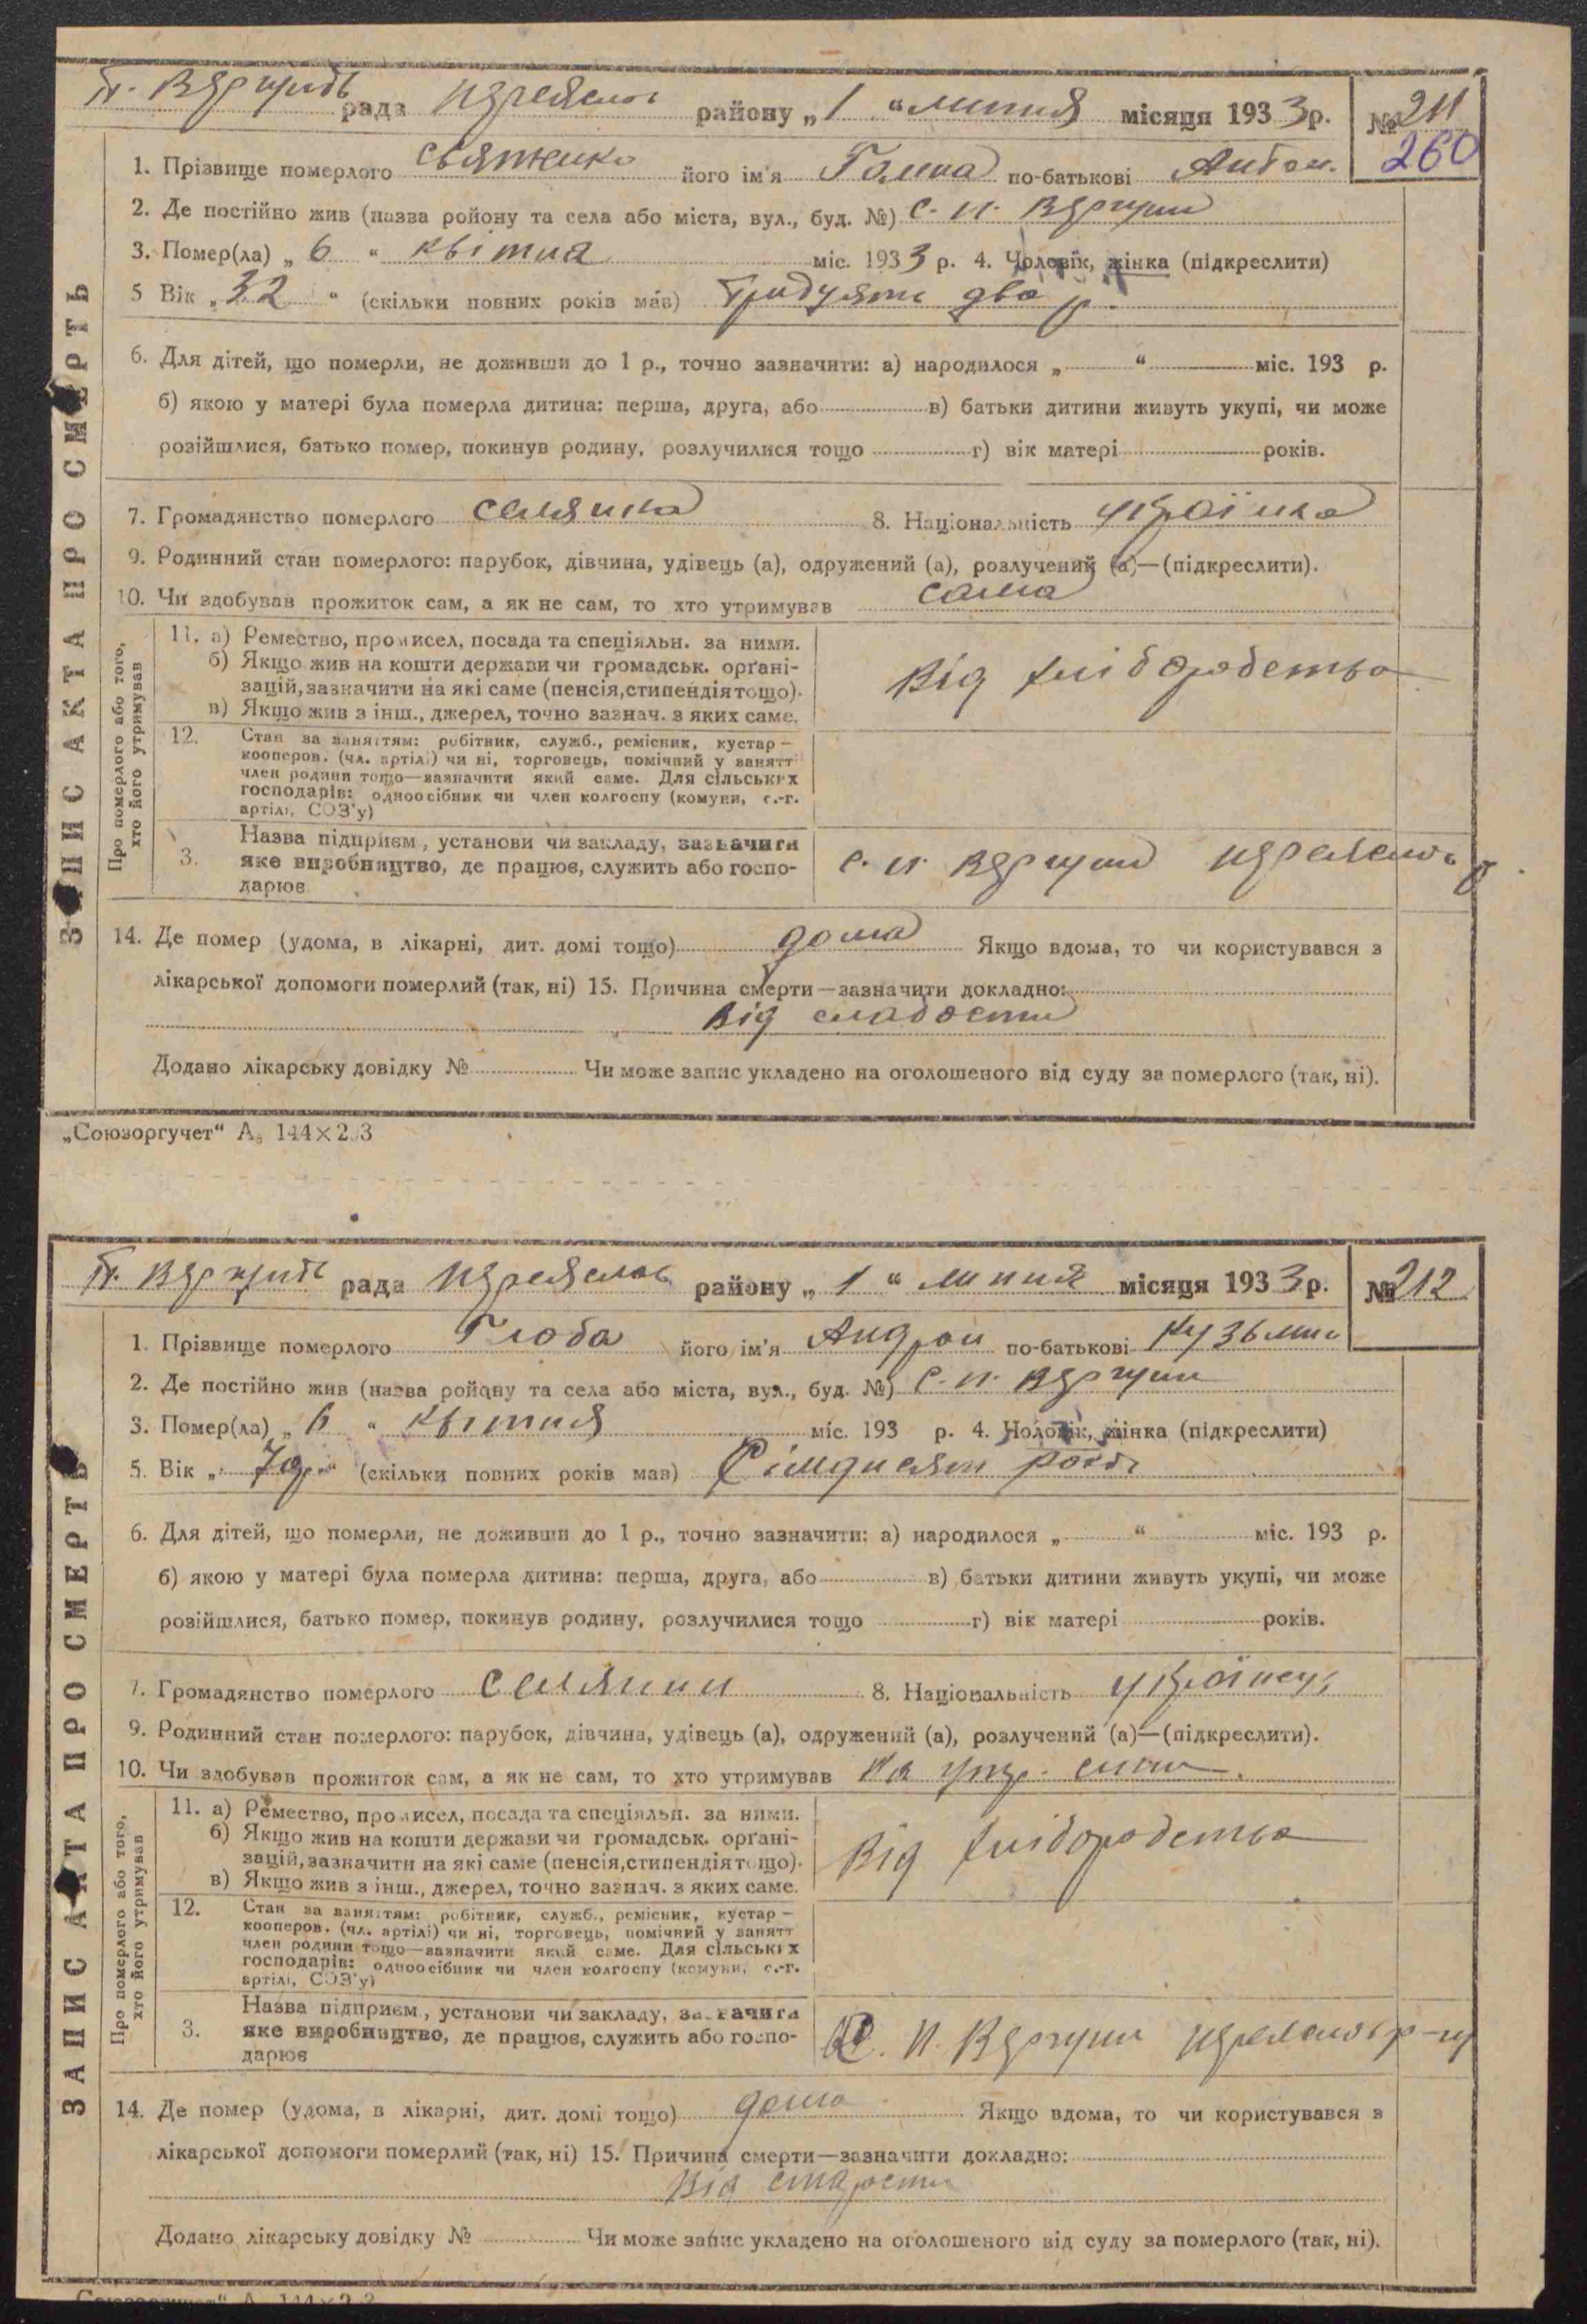 рада район у „ 1 “ липня місяця 193 3 р. № 211
260
1. Прізвище померлого його ім'я Ганна по-батькові Антон.
2. Де постійно жив (назва ройону та села або міста, вул., буд. №) с.
3. Помер(ла) „ 6 “ квітня міс. 193 3 р. 4. Чоловік, жінка (підкреслити)
5 Вік „ 32 “ (скільки повних років мав) два р.
6. Для дітей, що померли, не доживши до 1 р., точно зазначити: а) народилося „ “ міс. 193 р.
б) якою у матері була померла дитина: перша, друга, або в) батьки дитини живуть укупі, чи може
розійшлися, батько помер, покинув родину, розлучилися тощо г) вік матері років.
7. Громадянство померлого селянка 8. Національність українка
9. Родинний стан померлого: парубок, дівчина, удівець (а), одружений (а), розлучений (а)—(підкреслити).
10. Чи здобував прожиток сам, а як не сам, то хто утримував сама
ЗАПИС АКТА ПРО СМЕРТЬ
Про померлого або того,
хто його утримував
11. а) Ремество, промисел, посада та спеціяльн. за ними.
б) Якщо жив на кошти держави чи громадськ. орґані-
зацій, зазначити на які саме (пенсія, стипендія тощо).
в) Якщо жив з інш., джерел, точно зазнач. з яких саме.
Від хліборобства
12. Стан за заняттям: робітник, служб., ремісник, кустар —
кооперов. (чл. артілі) чи ні, торговець, помічний у занятт
член родини тощо—зазначити який саме. Для сільських
господарів: одноосібник чи член колгоспу (комуни, с.-г.
артілі, СОЗ'у)
3. Назва підприєм, установи чи закладу, зазначити
яке виробництво, де працює, служить або госпо-
дарює
с.
14. Де помер (удома, в лікарні, дит. домі тощо) дома Якщо вдома, то чи користувався з
лікарської допомоги померлий (так, ні) 15. Причина смерти—зазначити докладно:
Від слабости
Додано лікарську довідку № Чи може запис укладено на оголошеного від суду за померлого (так, ні).
„Союзоргучет“ А₅ 144×203
рада району „ 1 “ липня місяця 193 3 р. № 212
1. Прізвище померлого Глоба його ім'я Андрон по-батькові Кузьмич
2. Де постійно жив (назва ройону та села або міста, вул., буд. №) с.
3. Помер(ла) „ 6 “ квітня міс. 193 р. 4. Чоловік, жінка (підкреслити)
5. Вік „ 70 р. “ (скільки повних років мав) Сімдисят років
6. Для дітей, що померли, не доживши до 1 р., точно зазначити: а) народилося „ “ міс. 193 р.
б) якою у матері була померла дитина: перша, друга, або в) батьки дитини живуть укупі, чи може
розійшлися, батько помер, покинув родину, розлучилися тощо г) вік матері років.
7. Громадянство померлого селянин 8. Національність українец
9. Родинний стан померлого: парубок, дівчина, удівець (а), одружений (а), розлучений (а)—(підкреслити).
10. Чи здобував прожиток сам, а як не сам, то хто утримував На утр. сина
ЗАПИС АКТА ПРО СМЕРТЬ
Про померлого або того,
хто його утримував
11. а) Ремество, промисел, посада та спеціяльн. за ними.
б) Якщо жив на кошти держави чи громадськ. орґані-
зацій, зазначити на які саме (пенсія, стипендія тощо).
в) Якщо жив з інш., джерел, точно зазнач. з яких саме.
Від хліборобства
12. Стан за заняттям: робітник, служб., ремісник, кустар —
кооперов. (чл. артілі) чи ні, торговець, помічний у занятт
член родини тощо—зазначити який саме. Для сільських
господарів: одноосібник чи член колгоспу (комуни, с.-г.
артілі, СОЗ'у)
3. Назва підприєм, установи чи закладу, зазначити
яке виробництво, де працює, служить або госпо-
дарює
р-ну
14. Де помер (удома, в лікарні, дит. домі тощо) дома Якщо вдома, то чи користувався з
лікарської допомоги померлий (так, ні) 15. Причина смерти—зазначити докладно:
Від старости
Додано лікарську довідку № Чи може запис укладено на оголошеного від суду за померлого (так, ні).